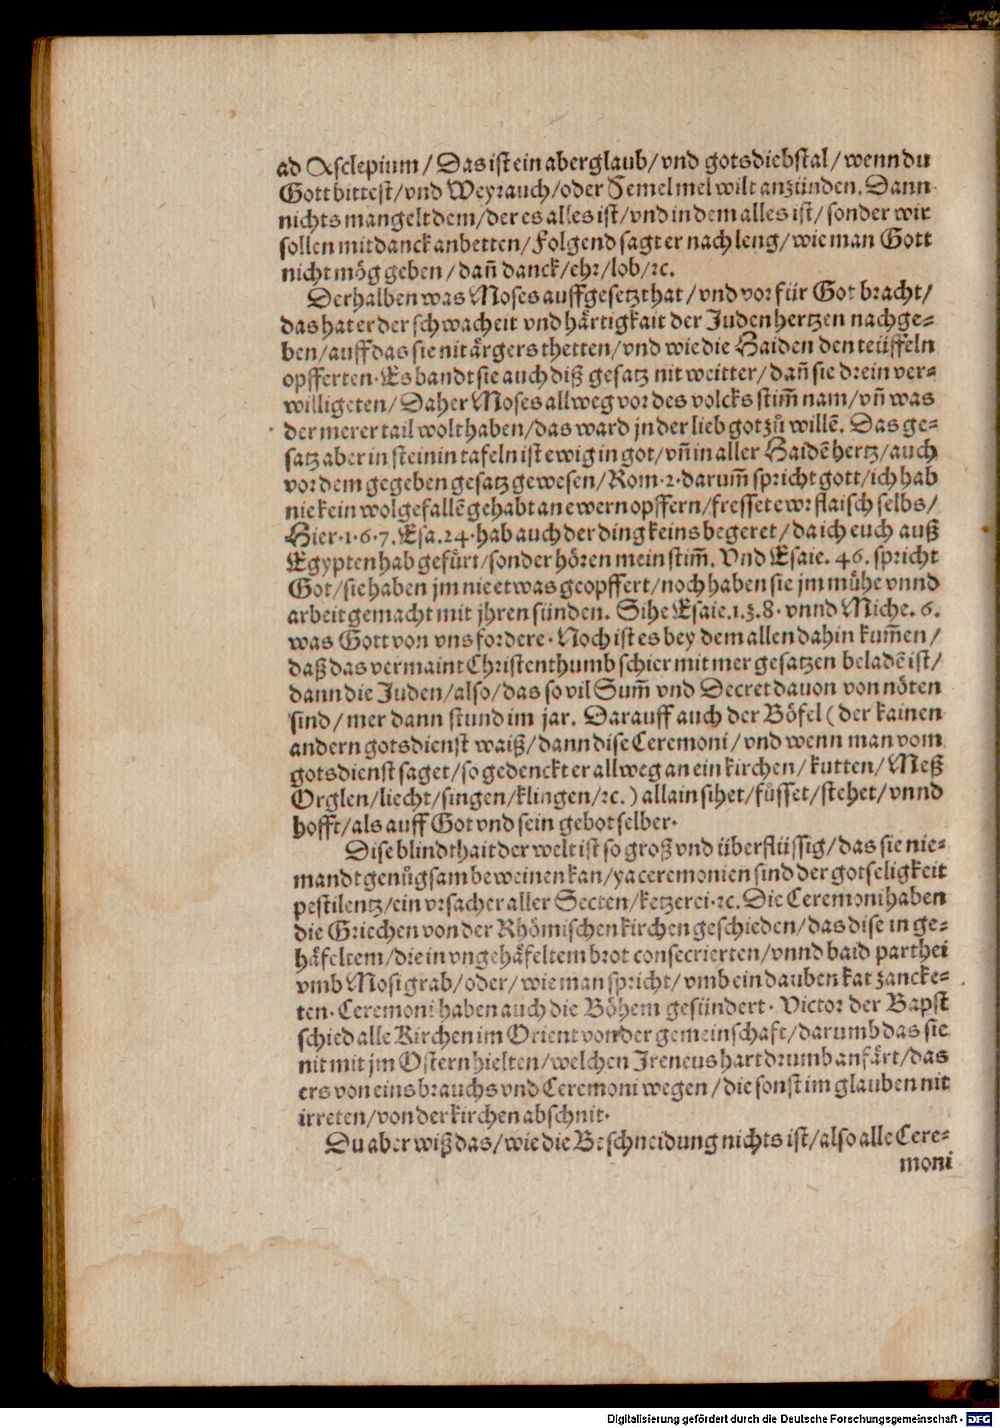 ad Asclepium / Das ist ein aberglaub / vnd gotsdiebstal / wenn du
Gott bittest / vnd Weyrauch / oder Semelmel wilt anzünden. Dann
nichts mangelt dem / der es alles ist / vnd in dem alles ist / sonder wir
sollen mit danck anbetten / Folgend sagt er nach leng / wie man Gott
nicht mög geben / dañ danck / ehr / lob / ꝛc.
Derhalben was Moses auffgesetzt hat / vnd vor für Got bracht /
das hat er der schwacheit vnd härtigkait der Juden hertzen nachge=
ben / auff das sie nit ärgers thetten / vnd wie die Haiden den teüffeln
opfferten. Es bandt sie auch diß gesatz nit weitter / dañ sie drein ver=
willigeten / Daher Moses allweg vor des volcks stim̃ nam / vñ was
der merer tail wolt haben / das ward jn der lieb got zů willẽ. Das ge=
satz aber in steinin tafeln ist ewig in got / vñ in aller Haidẽ hertz / auch
vor dem gegeben gesatz gewesen / Rom. 2. darum̃ spricht gott / ich hab
nie kein wolgefallẽ gehabt an ewern opffern / fresset ewr flaisch selbs /
Hier. 1. 6. 7. Esa. 24. hab auch der ding keins begeret / da ich euch auß
Egypten hab gefürt / sonder hören mein stim̃. Vnd Esaie. 46. spricht
Got / sie haben jm nie etwas geopffert / noch haben sie jm mühe vnnd
arbeit gemacht mit jhren sünden. Sihe Esaie. 1. 3. 8. vnnd Miche. 6.
was Gott von vns fordere. Noch ist es bey dem allen dahin kum̃en /
daß das vermaint Christenthumb schier mit mer gesatzen beladẽ ist /
dann die Juden / also / das so vil Sum̃ vnd Decret dauon von nöten
sind / mer dann stund im jar. Darauff auch der Böfel ( der kainen
andern gotsdienst waiß / dann dise Ceremoni / vnd wenn man vom
gotsdienst saget / so gedenckt er allweg an ein kirchen / kutten / Meß
Orglen / liecht / singen / klingen / ꝛc. ) allain sihet / füsset / stehet / vnnd
hofft / als auff Got vnd sein gebot selber.
Dise blindthait der welt ist so groß vnd überflüssig / das sie nie=
mandt genůgsam beweinen kan / ya ceremonien sind der gotseligkeit
pestilentz / ein vrsacher aller Secten / ketzerei. ꝛc. Die Ceremoni haben
die Griechen von der Rhömischen kirchen geschieden / das dise in ge=
häfeltem / die in vngehäfeltem brot consecrierten / vnnd baid parthei
vmb Mosi grab / oder / wie man spricht / vmb ein dauben kat zancke=
ten. Ceremoni haben auch die Böhem gesündert. Victor der Bapst
schied alle Kirchen im Orient von der gemeinschaft / darumb das sie
nit mit jm Ostern hielten / welchen Ireneus hart drumb anfärt / das
ers von eins brauchs vnd Ceremoni wegen / die sonst im glauben nit
irreten / von der kirchen abschnit.
Du aber wiß das / wie die Beschneidung nichts ist / also alle Cere=
moni
Digitalisierung gefördert durch die Deutsche Forschungsgemeinschaft - DFG